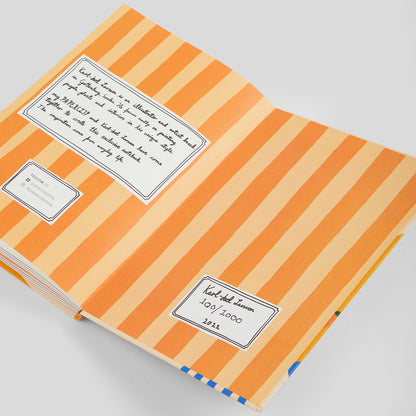 Karl-Joel Larsson is an illustrator and artist based
in Gothenburg, Sweden. He focus mostly on painting
people, plants and interiors in his unique style.
PAPERCLIP and Karl-Joel Larsson have come
together to create this exclusive notebook.
The inspiration comes from everyday life.
FOLLOW US
Karl-Joel Larsson
100/1000
2022